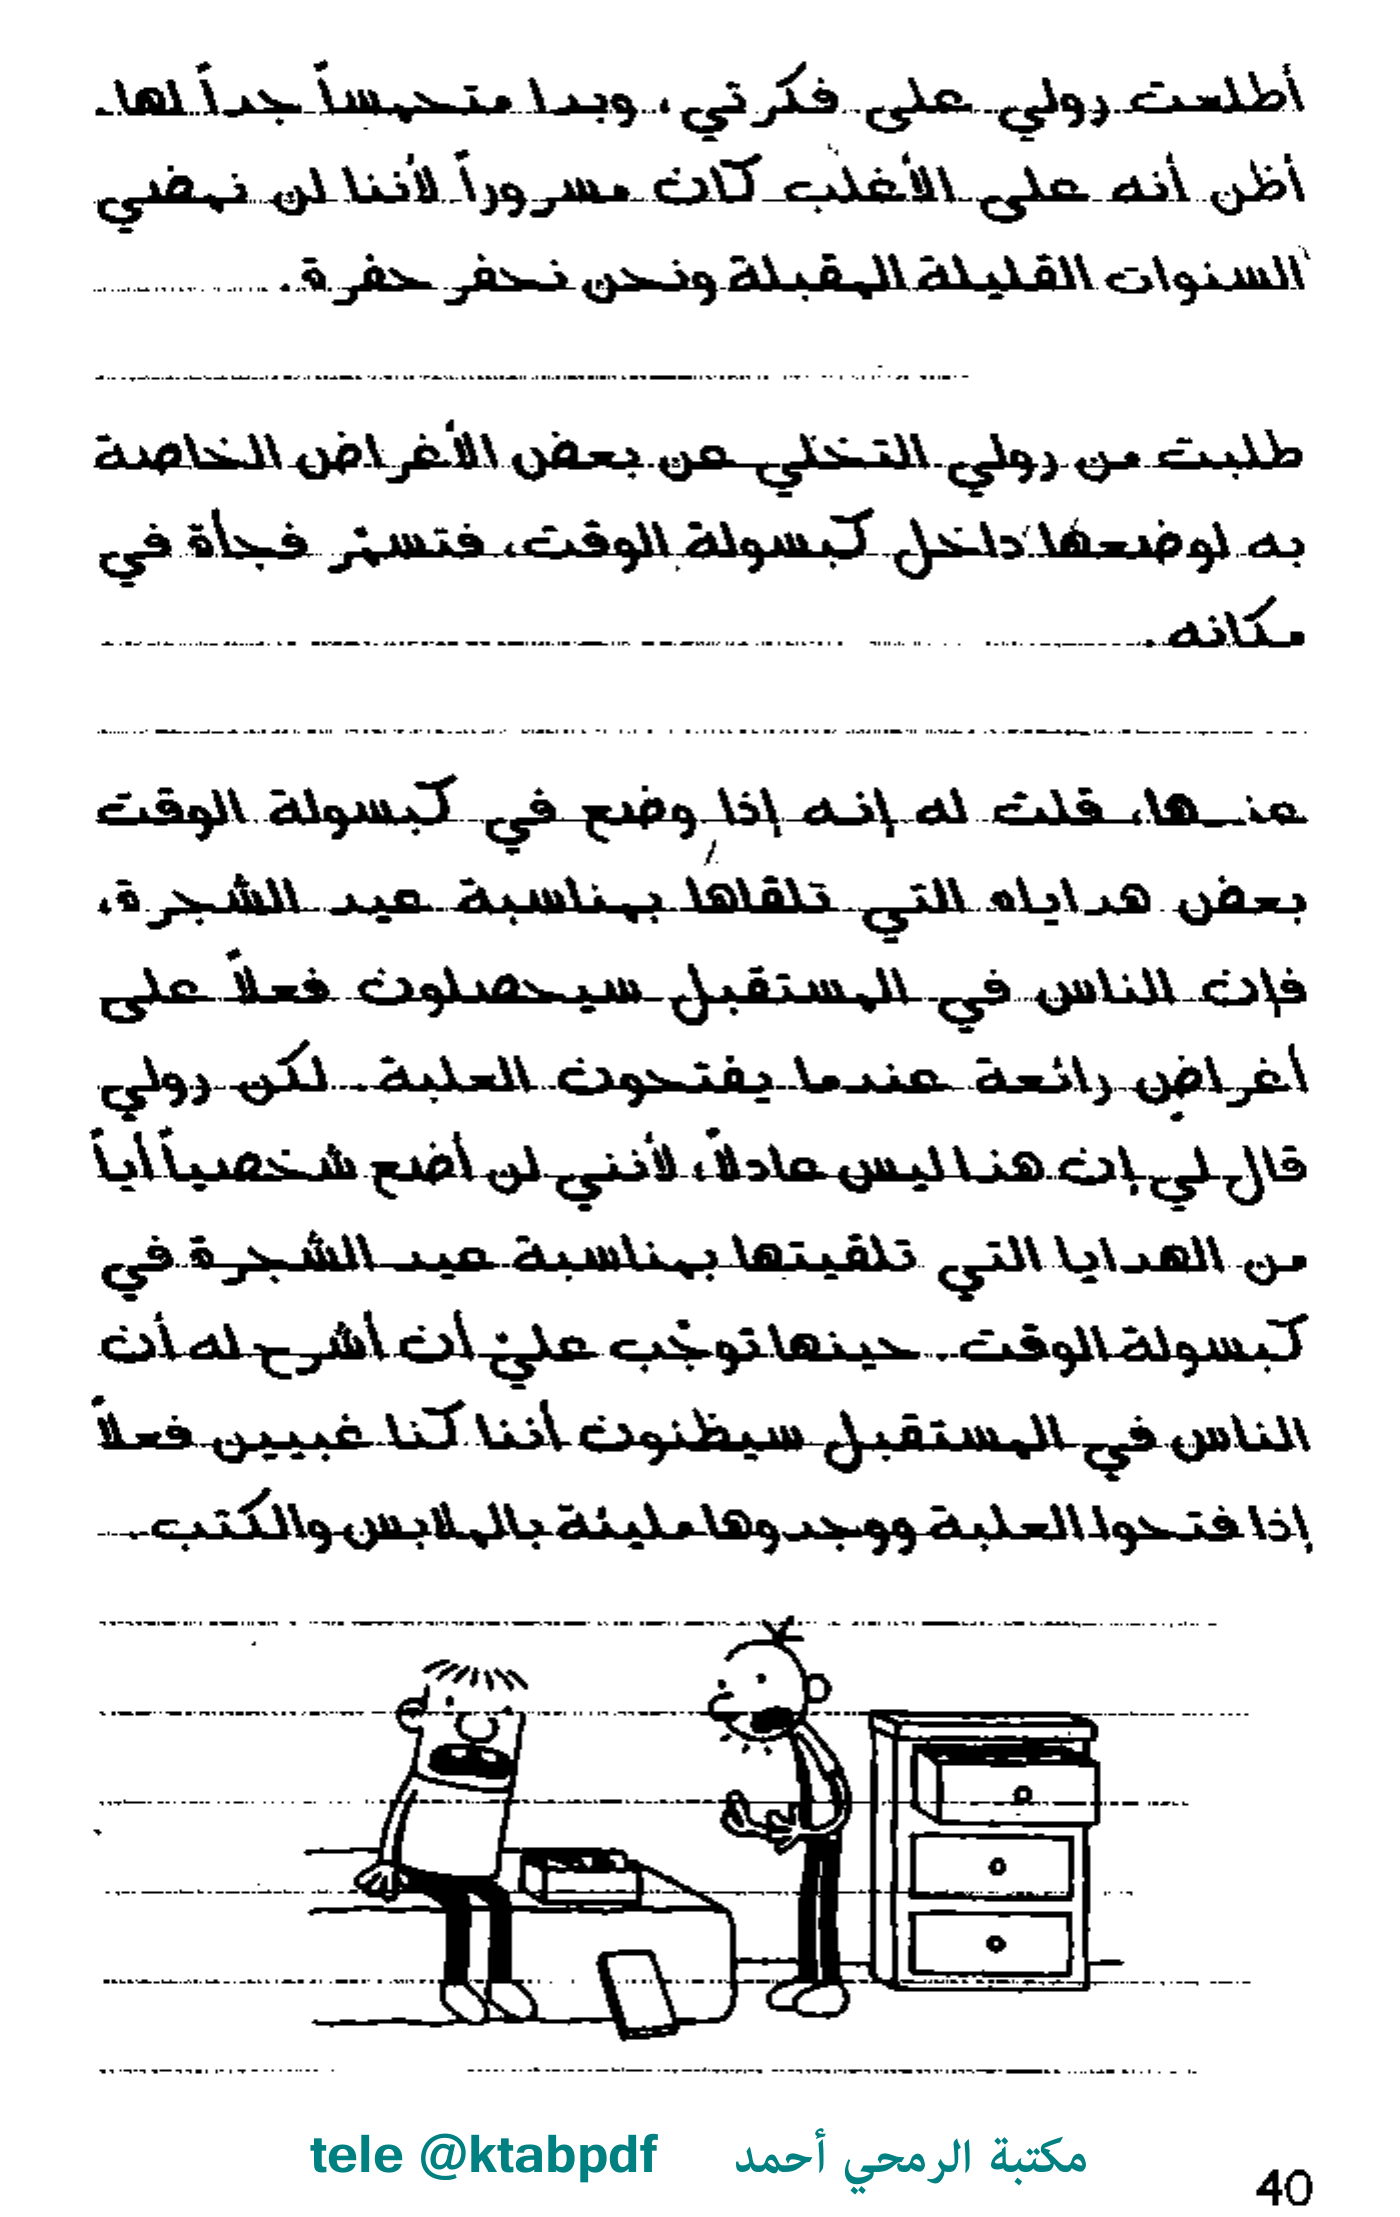 أطلعت رولي على فكرتي، وبدا متحمساً جداً لها.
أظن أنه على الأغلب كان مسروراً لأننا لن نمضي
السنوات القليلة المقبلة ونحن نحفر حفرة.
طلبت من رولي التخلي عن بعض الأغراض الخاصة
به لوضعها داخل كبسولة الوقت، فتسمّر فجأة في
مكانه.
عندها، قلت له إنه إذا وضع في كبسولة الوقت
بعض هداياه التي تلقاها بمناسبة عيد الشجرة،
فإن الناس في المستقبل سيحصلون فعلاً على
أغراض رائعة عندما يفتحون العلبة. لكن رولي
قال لي إن هذا ليس عادلاً، لأنني لن أضع شخصياً أياً
من الهدايا التي تلقيتها بمناسبة عيد الشجرة في
كبسولة الوقت. حينها توجّب عليّ أن أشرح له أن
الناس في المستقبل سيظنون أننا كنا غبيين فعلاً
إذا فتحوا العلبة ووجدوها مليئة بالملابس والكتب.
مكتبة الرمحي أحمد tele @ktabpdf
40